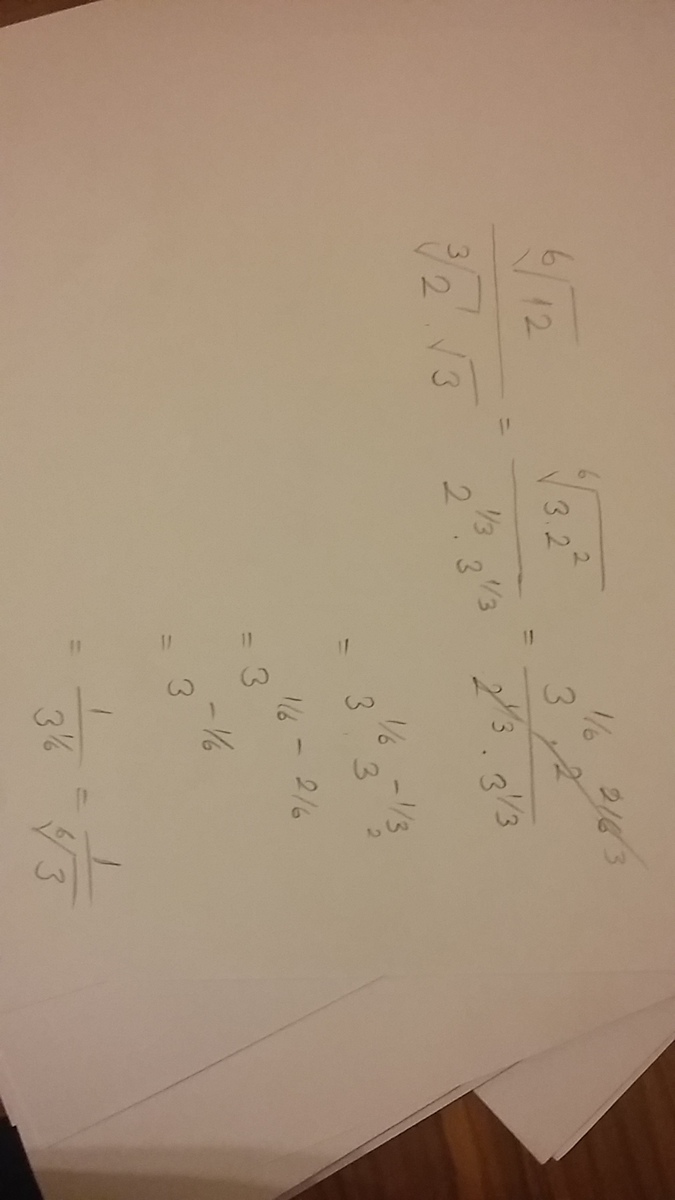 ⁶√12 / (³√2 · √3) = ⁶√(3.2²) / (2^1/3 · 3^1/3) = 3^1/6 · 2^2/6 3 / (2^1/3 · 3^1/3)
= 3^1/6 · 3^-1/3 2
= 3^1/6 - 2/6
= 3^-1/6
= 1/3^1/6 = 1/⁶√3